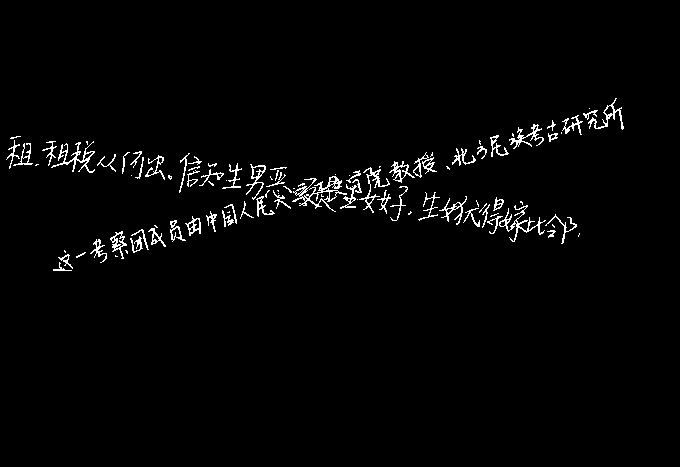 租.租税从何出。信知生男恶,是生女好.生女犹得嫁比邻,
这一考察团成员由中国人民大学历史学院教授、北方民族考古研究所